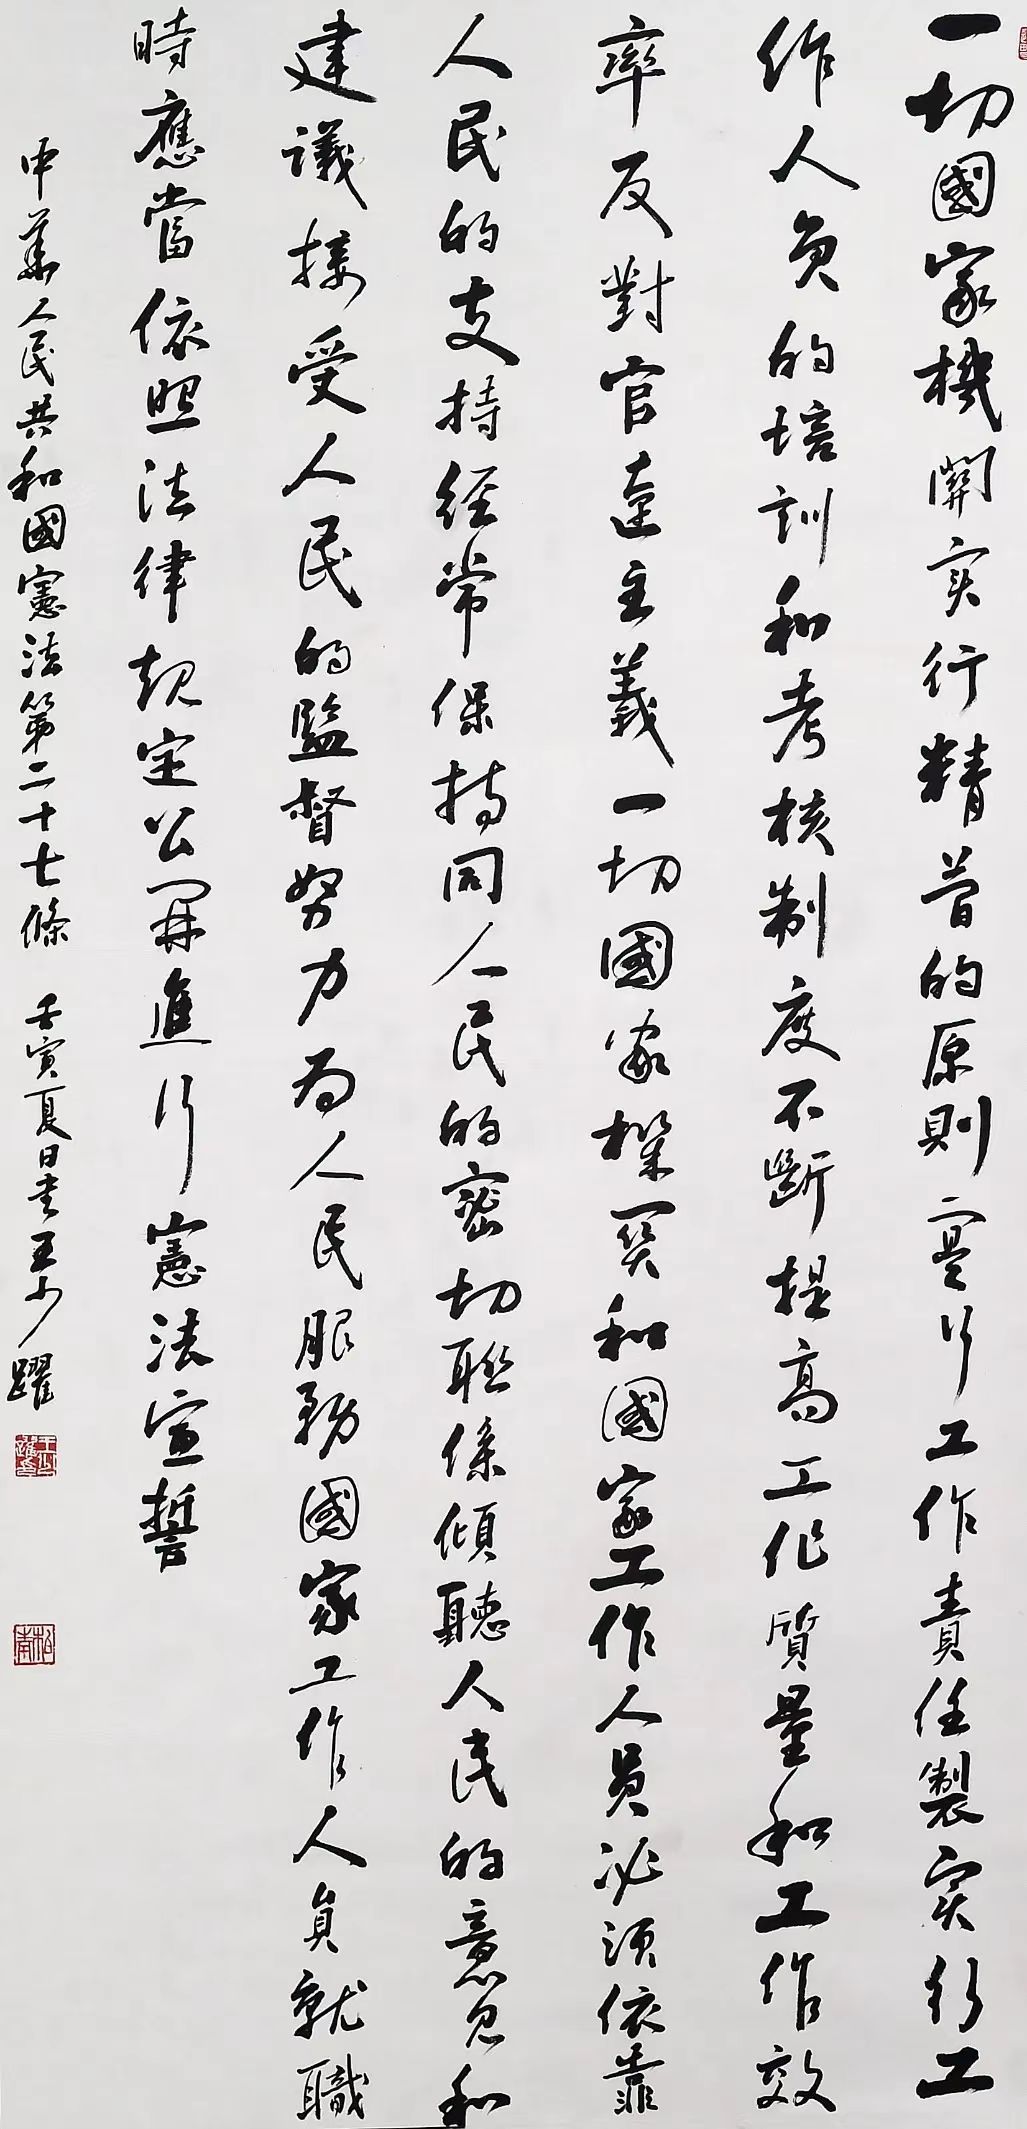 一切國家機關实行精萅的原則實行工作責任製实行工
作人员的培訓和考核制度不斷提高工作質量和工作效
率反對官僚主義一切國家機関和國家工作人員必須依靠
人民的支持経常保持同人民的密切聯係傾聽人民的意見和
建議接受人民的監督努力为人民服務國家工作人員就職
時應當依照法律規定公開進行憲法宣誓
中華人民共和國憲法第二十七條 壬寅夏日書王少躍